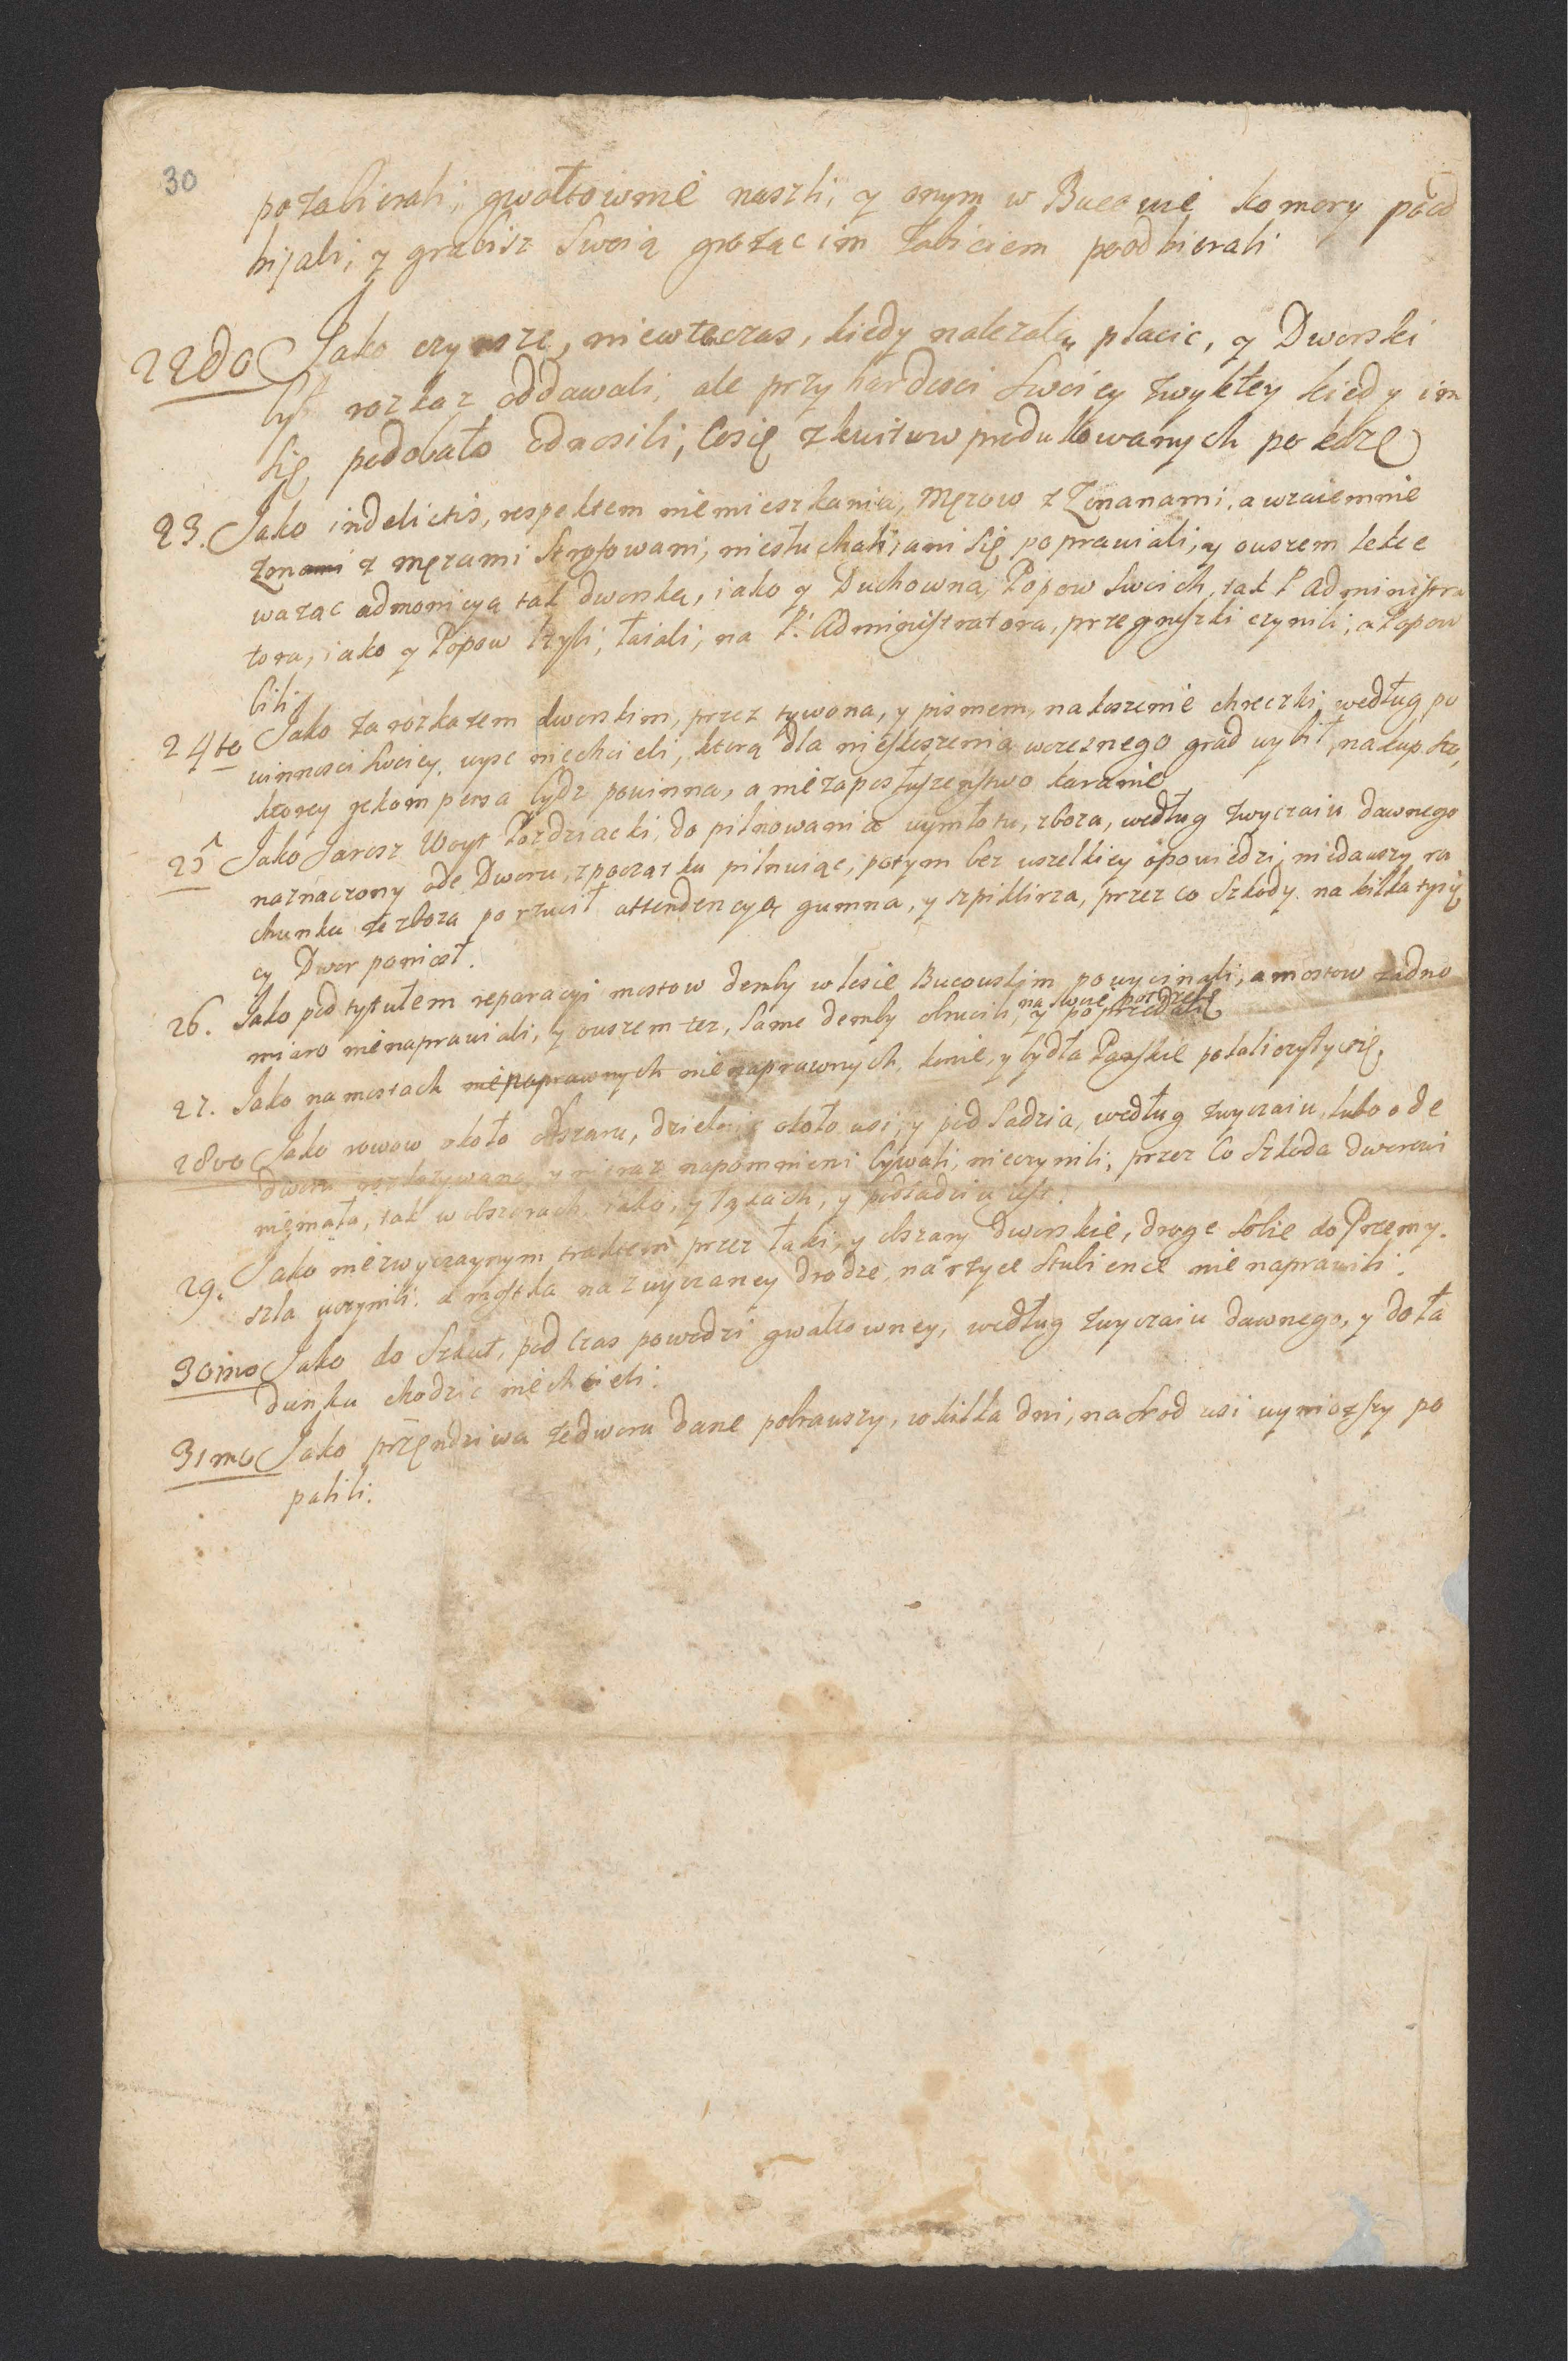 30
pozabierali, gwałtownie naszli, y onym w Bucowie komory pood
bijali, y grabisz Swoią grożąc im zabiciem poodbierali
22do Jako czynsze, niewteczas, kiedy należało płacic, y Dworski
był rozkaz oddawali, ale przy hardosci Swoiey zwykłey kiedy im
Się podobało odnosili, Cosię zkwitow produkowanych pokaze
23. Jako indelictis, respektem niemieszkania, Męzow z Zonanami, a wzaiemnie
Zonami z męzami Strofowani, niesłuchali, ani Się poprawiali, y owszem lekce
wazac admonicyą tak dworską, iako y Duchowną Popow Swoich, tak P Administra
tora, iako y Popow lzyli, łaiali, na P: Administratora, przegruszki czynili, a Popow
bili
24to Jako za rozkazem dworskim, przez tywona, y pismem, na koszenie chreczki według po
winnosci Swoiey, wysc niechcieli, ktorą dla nieskoszenia wczesnego grad wybił, na kup. Sto,
ktorey rekompensa bydz powinna, a niezaposłuszeństwo karanie
25 Jako Jarosz Woyt Pozdziacki, do pilnowania wymłotu, zboza, według zwyczaiu dawnego
naznaczony ode Dworu, zpoczatku pilnuiąc, potym bez wszelkiey opowiedzi, niedawszy ra
chunku ze zboza porzucił attendencyą gumna, y szpiklirza, przez co Szkody na kilka tysię
cy Dwor poniosł.
26. Jako pod tytułem reparacyi mostow demby w lesie Bucowskim powycinali, a mostow zadno
miaro nienaprawiali, y owszem tez, Same demby obrucili, na swoię potrzebę y poprzedali
27. Jako na mostach nienaprawnych nienaprawnych, konie, y bydła Pańskie pokaliczyły się,
28vo Jako rowow około obszaru, dzielnic około wsi, y pod Sadzia, według zwyczaiu, lubo ode
dworu rozkazywano, y nieraz napomnieni bywali, nieczynili, przez Co Szkoda dworowi
niemała, tak w obszarach, iako, y łąkach, y podsadziu iest.
29. Jako niezwyczaynym traktem przez łąki, y obszary dworskie, droge Sobie do Przemy.
szla uczynili. a mostka na zwyczaney drodze, na rzyce Stubience nienaprawili.
30imo Jako do Szkut, pod Czas powodzi gwałtowney, według zwyczaiu dawnego, y do ła
dunku chodzic niechcieli.
31mo Jako przendziwa ze dworu dane pobrawszy, w kilka dni, na Srod wsi wyniozszy po
palili.